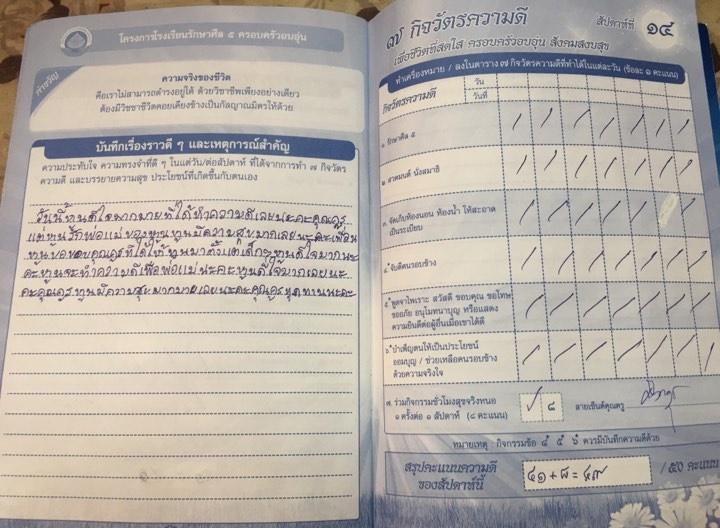 โครงการโรงเรียนรักษาศีล ๕ ครอบครัวอบอุ่น
คำขวัญ
ความจริงของชีวิต
คือเราไม่สามารถดำรงอยู่ได้ ด้วยวิชาชีพเพียงอย่างเดียว
ต้องมีวิชชาชีวิตคอยเคียงข้างเป็นกัลญาณมิตรให้ด้วย
บันทึกเรื่องราวดี ๆ และเหตุการณ์สำคัญ
ความประทับใจ ความทรงจำที่ดี ๆ ในแต่ละวัน/ต่อสัปดาห์ ที่ได้จากการทำ ๗ กิจวัตร
ความดี และบรรยายความสุข ประโยชน์ที่เกิดขึ้นกับตนเอง
วันนี้หนูดีใจมากมายที่ได้ทำความดีเลยนะคะคุณครู
แต่หนูรักพ่อแม่ของหนูหนูมีความสุขมากเลยนะคะเพื่อน
หนูขอขอบคุณครูที่ได้ให้หนูมาตั้งแต่เด็กๆหนูดีใจมากนะ
คะหนูจะทำความดีเพื่อพ่อแม่นะคะหนูดีใจมากเลยนะ
คะคุณครูหนูมีความสุขมากมายเลยนะคะคุณครูทุกท่านนะคะ
๗ กิจวัตรความดี
สัปดาห์ที่ ๑๔
เพื่อชีวิตที่สดใส ครอบครัวอบอุ่น สังคมสงบสุข
ทำเครื่องหมาย / ลงในตาราง ๗ กิจวัตรความดีที่ทำได้ในแต่ละวัน (ข้อละ ๑ คะแนน)
กิจวัตรความดี
วัน
วันที่
๑. รักษาศีล ๕
๒. สวดมนต์ นั่งสมาธิ
๓. จัดเก็บห้องนอน ห้องน้ำ ให้สะอาด
เป็นระเบียบ
๔. จับดีคนรอบข้าง
๕. พูดจาไพเราะ สวัสดี ขอบคุณ ขอโทษ
ขออภัย อนุโมทนาบุญ หรือแสดง
ความยินดีต่อผู้อื่นเมื่อเขาได้ดี
๖. บำเพ็ญตนให้เป็นประโยชน์
ออมบุญ / ช่วยเหลือคนรอบข้าง
ด้วยความจริงใจ
๗. ร่วมกิจกรรมชั่วโมงสุขจริงหนอ
๑ ครั้งต่อ ๑ สัปดาห์ (๘ คะแนน)
/ ๘
ลายเซ็นต์คุณครู
หมายเหตุ กิจกรรมข้อ ๔ ๕ ๖ ควรมีบันทึกความดีด้วย
สรุปคะแนนความดี
ของสัปดาห์นี้
๔๑+๘=๔๙ / ๕๐ คะแนน